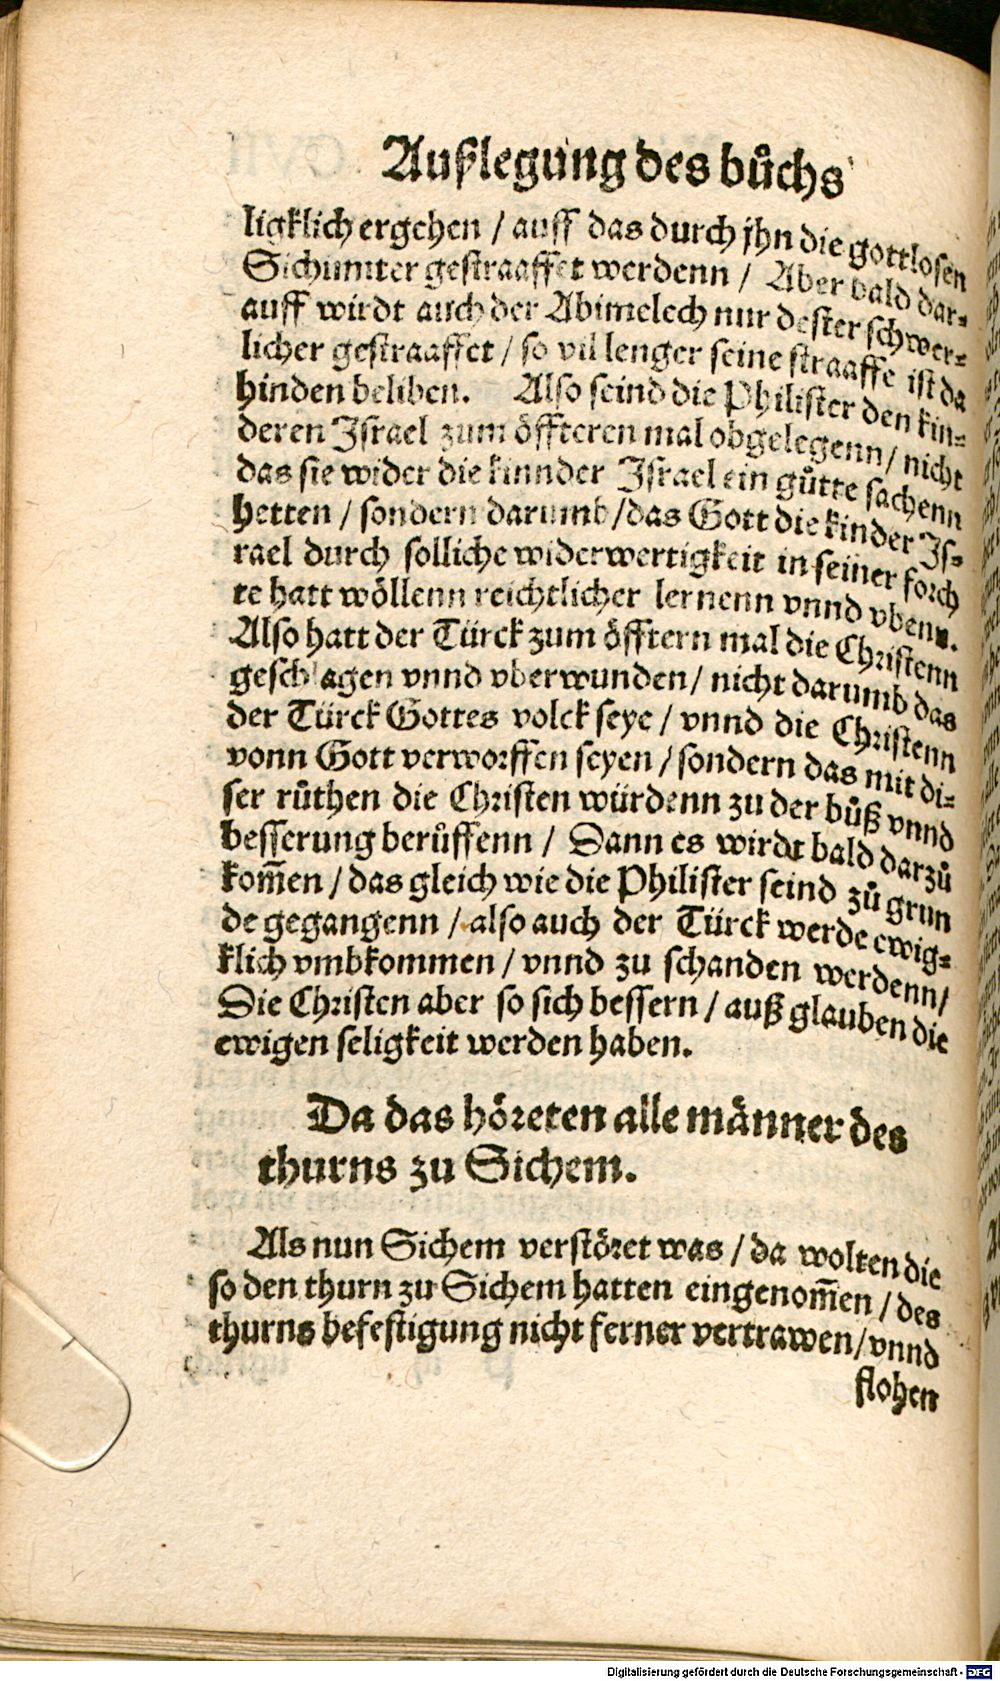 Außlegung des bůchs
ligklich ergehen / auff das durch jhn die gottlosen
Sichimiter gestraaffet werdenn / Aber bald dar-
auff wirdt auch der Abimelech nur dester schwer-
licher gestraaffet / so vil lenger seine straaffe ist da
hinden beliben. Also seind die Philister den kin-
deren Israel zum öffteren mal obgelegenn / nicht
das sie wider die kinnder Israel ein gůtte sachenn
hetten / sondern darumb / das Gott die kinder Is-
rael durch solliche widerwertigkeit in seiner forch
te hatt wöllenn reichtlicher lernenn vnnd vbenn.
Also hatt der Türck zum öfftern mal die Christenn
geschlagen vnnd vberwunden / nicht darumb das
der Türck Gottes volck seye / vnnd die Christenn
vonn Gott verworffen seyen / sondern das mit di-
ser růthen die Christen würdenn zu der bůß vnnd
besserung berůffenn / Dann es wirdt bald darzů
kom̄en / das gleich wie die Philister seind zů grun
de gegangenn / also auch der Türck werde ewig-
klich vmbkommen / vnnd zu schanden werdenn /
Die Christen aber so sich bessern / auß glauben die
ewigen seligkeit werden haben.
Da das höreten alle männer des
thurns zu Sichem.
Als nun Sichem verstöret was / da wolten die
so den thurn zu Sichem hatten eingenom̄en / des
thurns befestigung nicht ferner vertrawen / vnnd
flohen
Digitalisierung gefördert durch die Deutsche Forschungsgemeinschaft - DFG